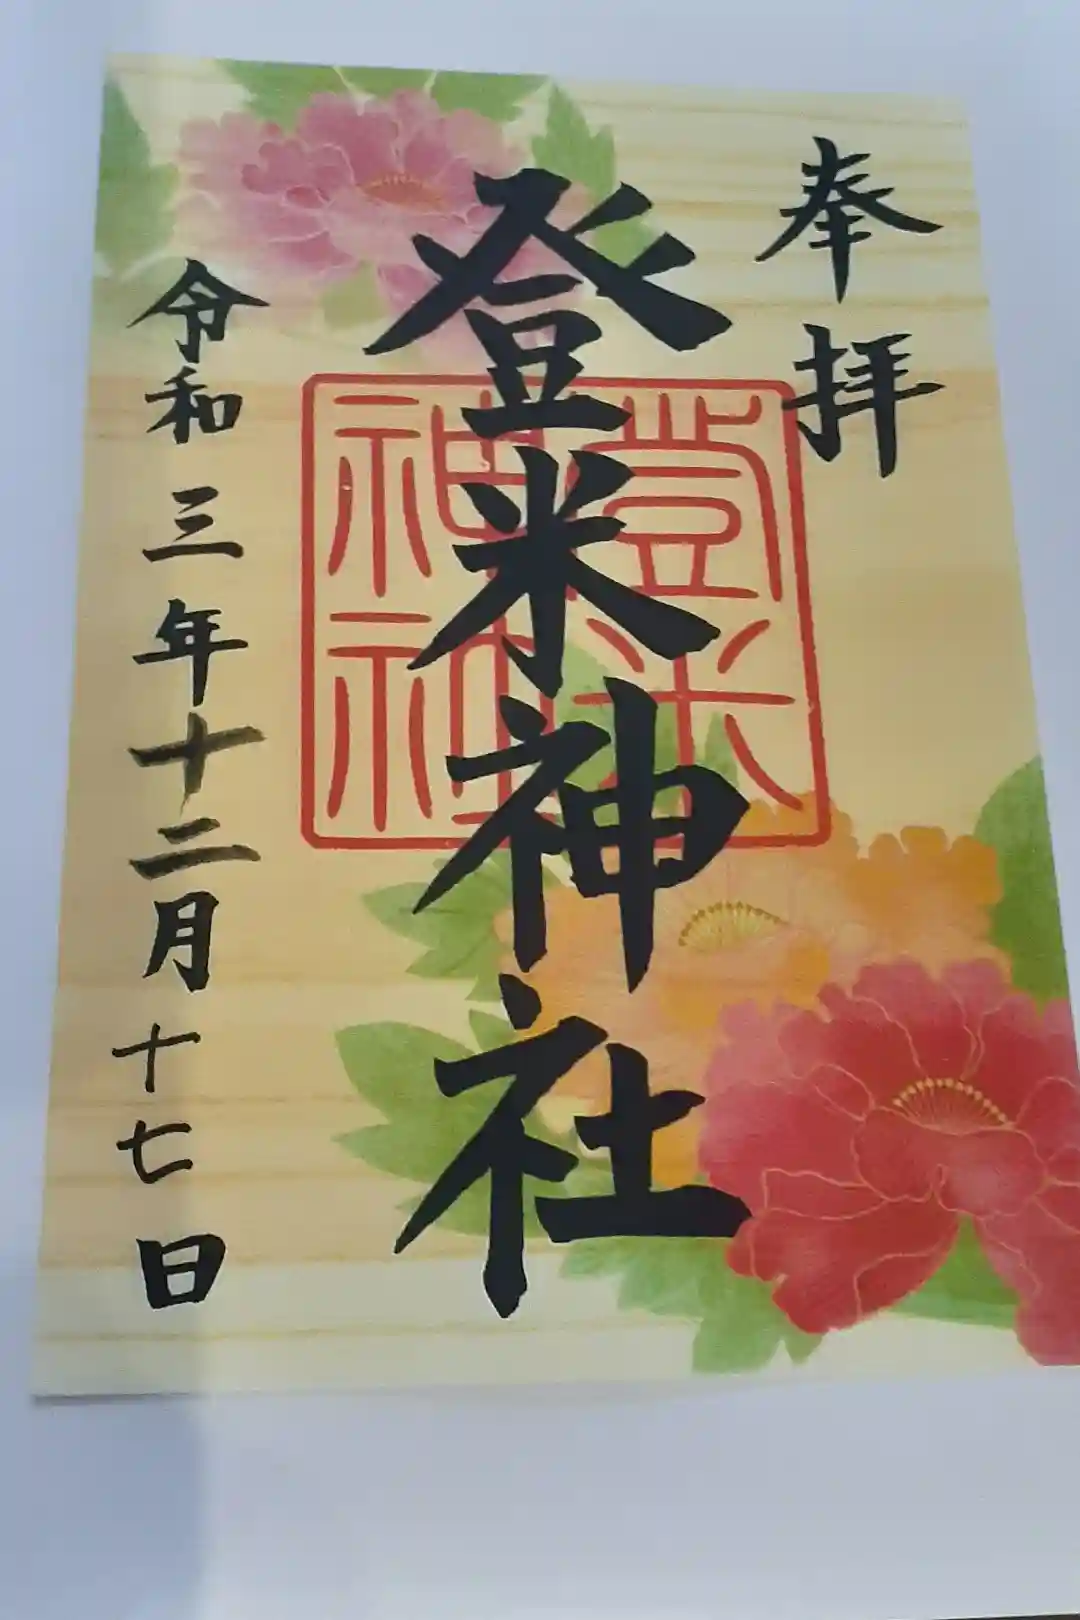 奉拝
登米神社
登米
神社
令和三年十二月十七日